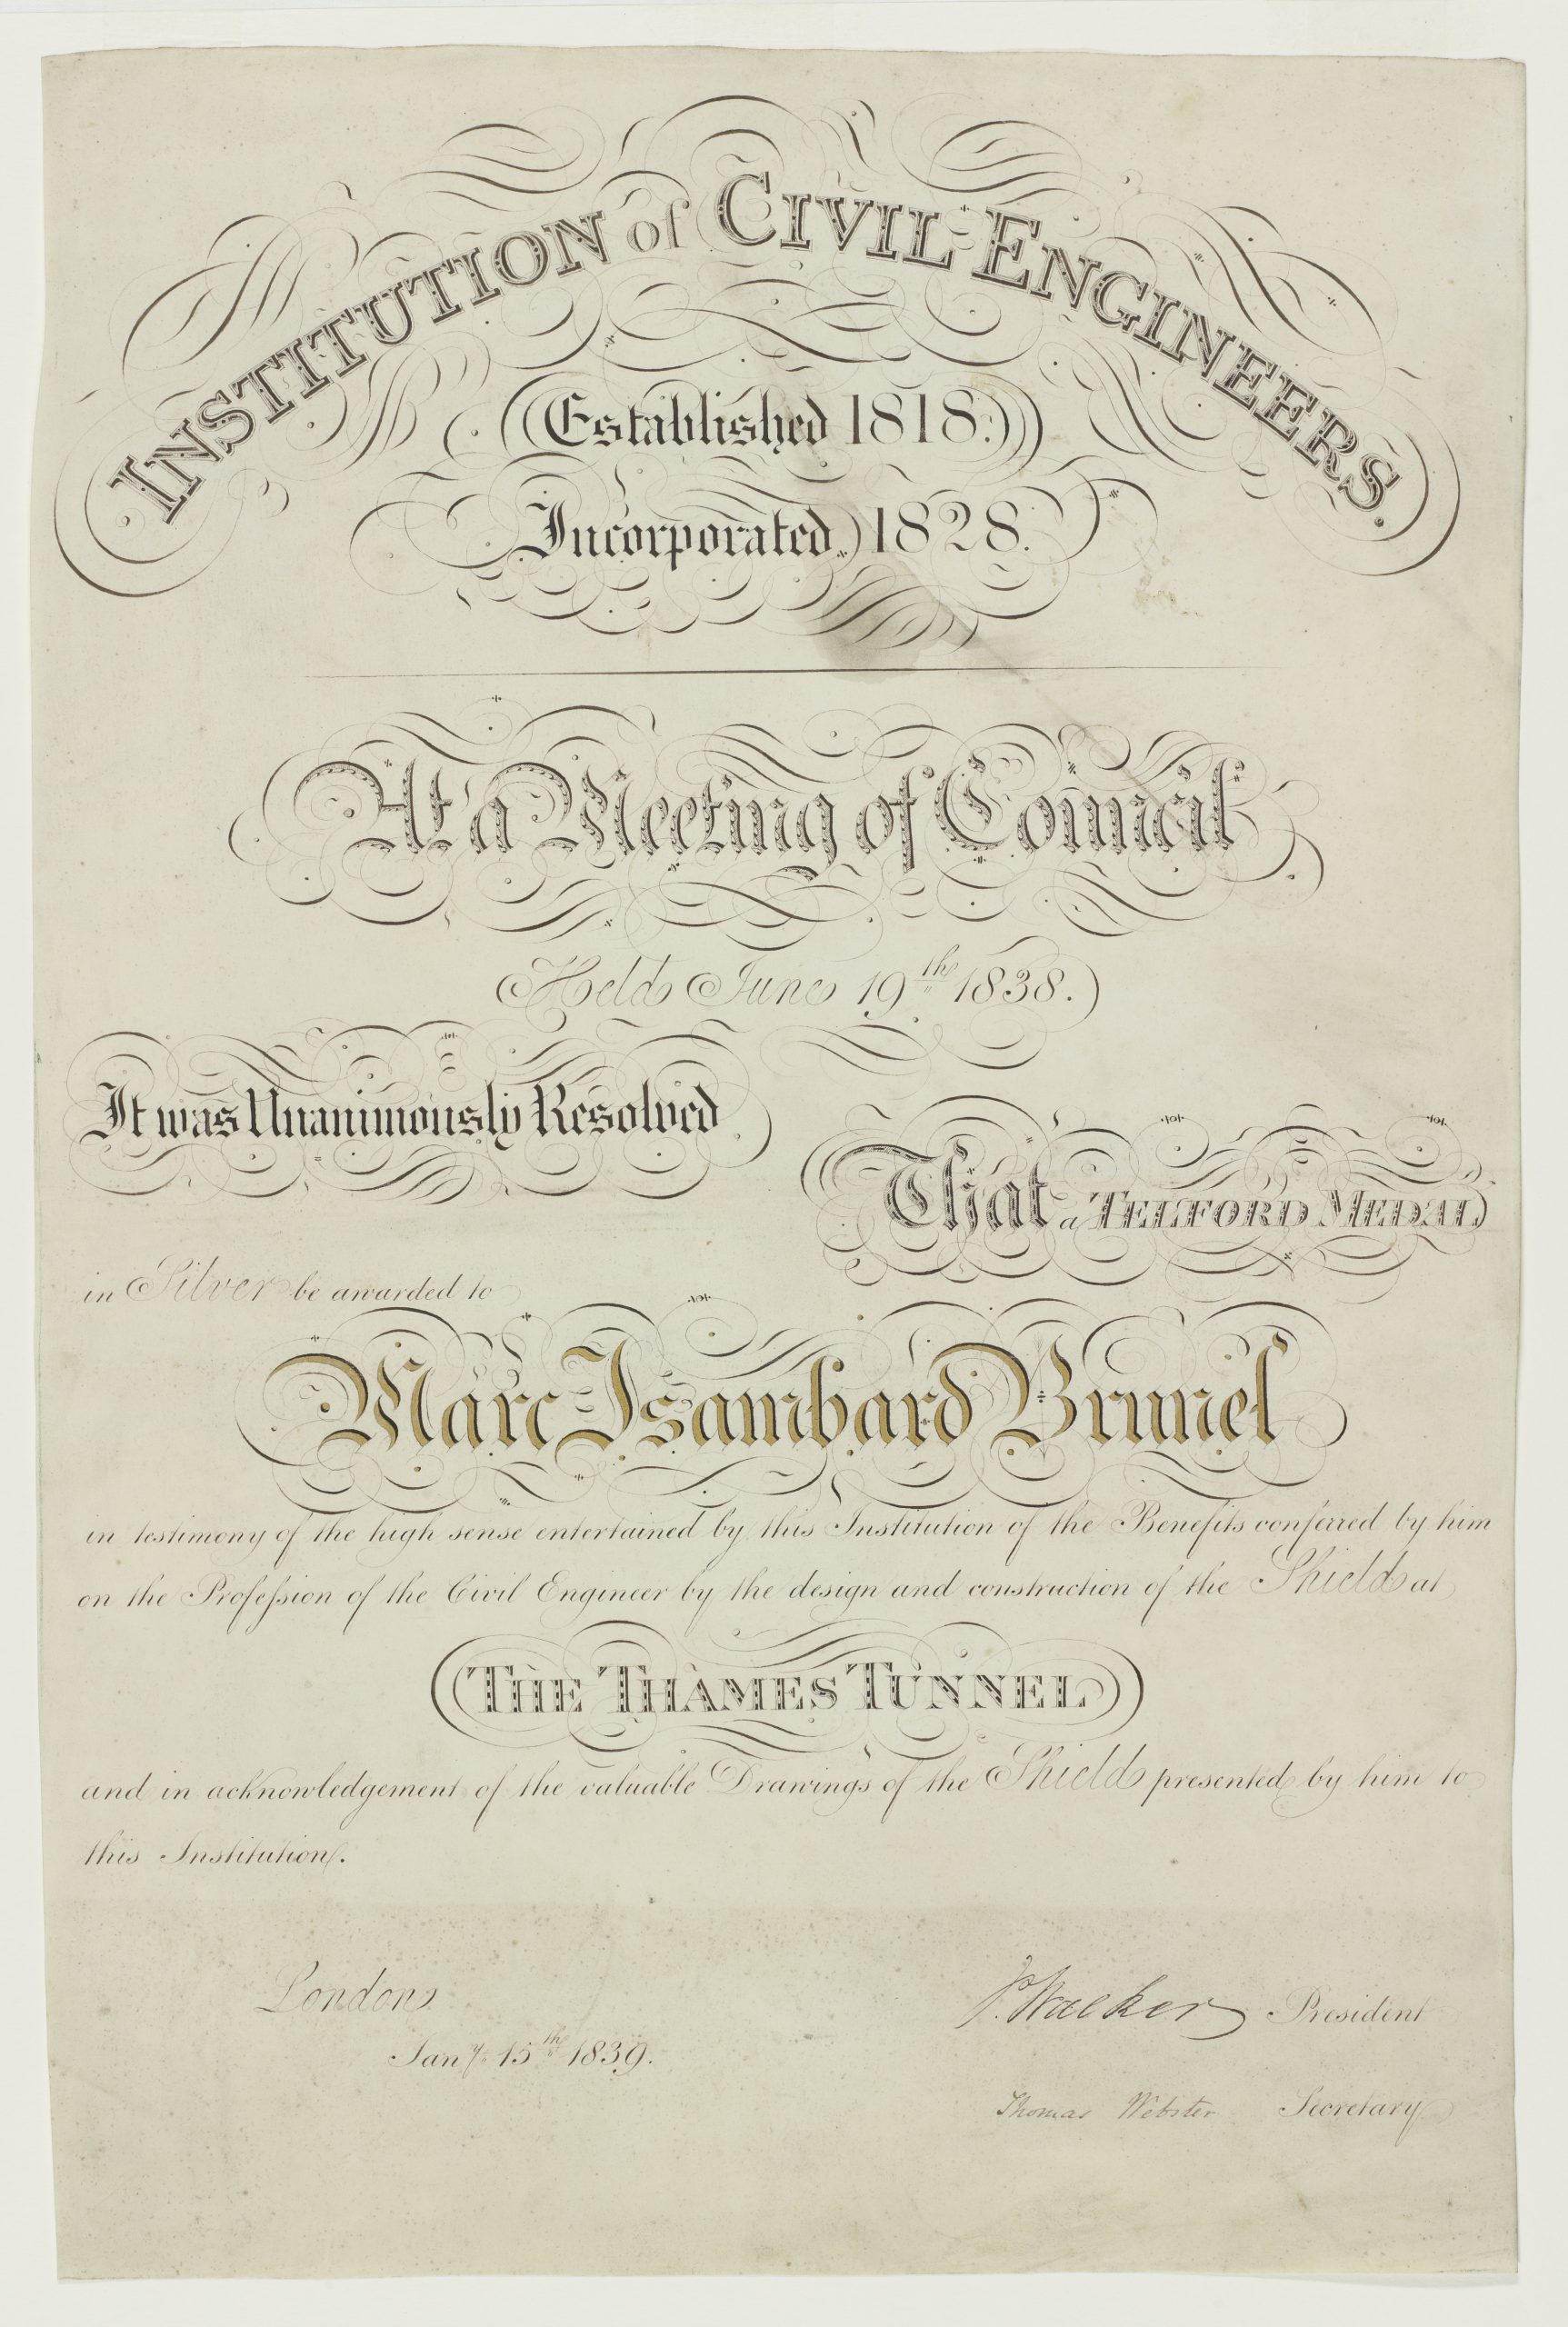 INSTITUTION of CIVIL ENGINEERS.
(Established 1818.)
Incorporated, 1828.
At a Meeting of Council
Held June 19th 1838.
It was Unanimously Resolved
That a TELFORD MEDAL
in Silver be awarded to
Marc Isambard Brunel
in testimony of the high sense entertained by this Institution of the Benefits conferred by him
on the Profeſsion of the Civil Engineer by the design and construction of the Shield at
THE THAMES TUNNEL
and in acknowledgement of the valuable Drawings of the Shield presented by him to
this Institution.
London
Jany. 15th 1839.
J. Walker President
Thomas Webster Secretary